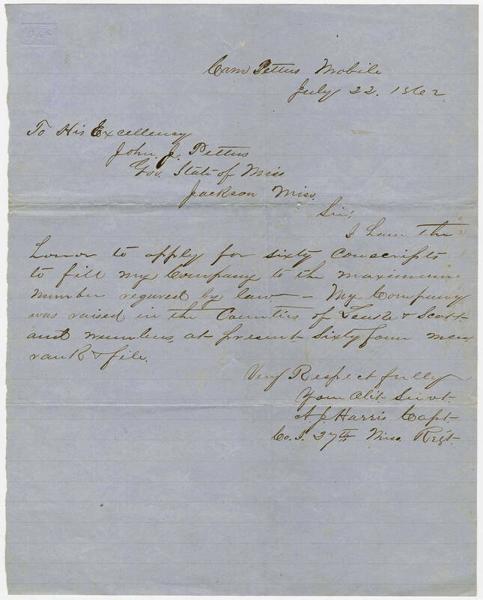 Cam Pettus Mobile
July 22. 1862
To His Excellency
John. J. Pettus
Gov State of Miss
Jackson Miss.
Sir;
I have the
honor to apply for sixty Conscripts
to fill my Company to the maximum
number required by law — My Company
was raised in the Counties of Leake & Scott
and numbers at present Sixty four men
rank & file.
Very Respectfully
Your Obt Servt
A J Harris Capt
Co. I. 27th Miss Regt.